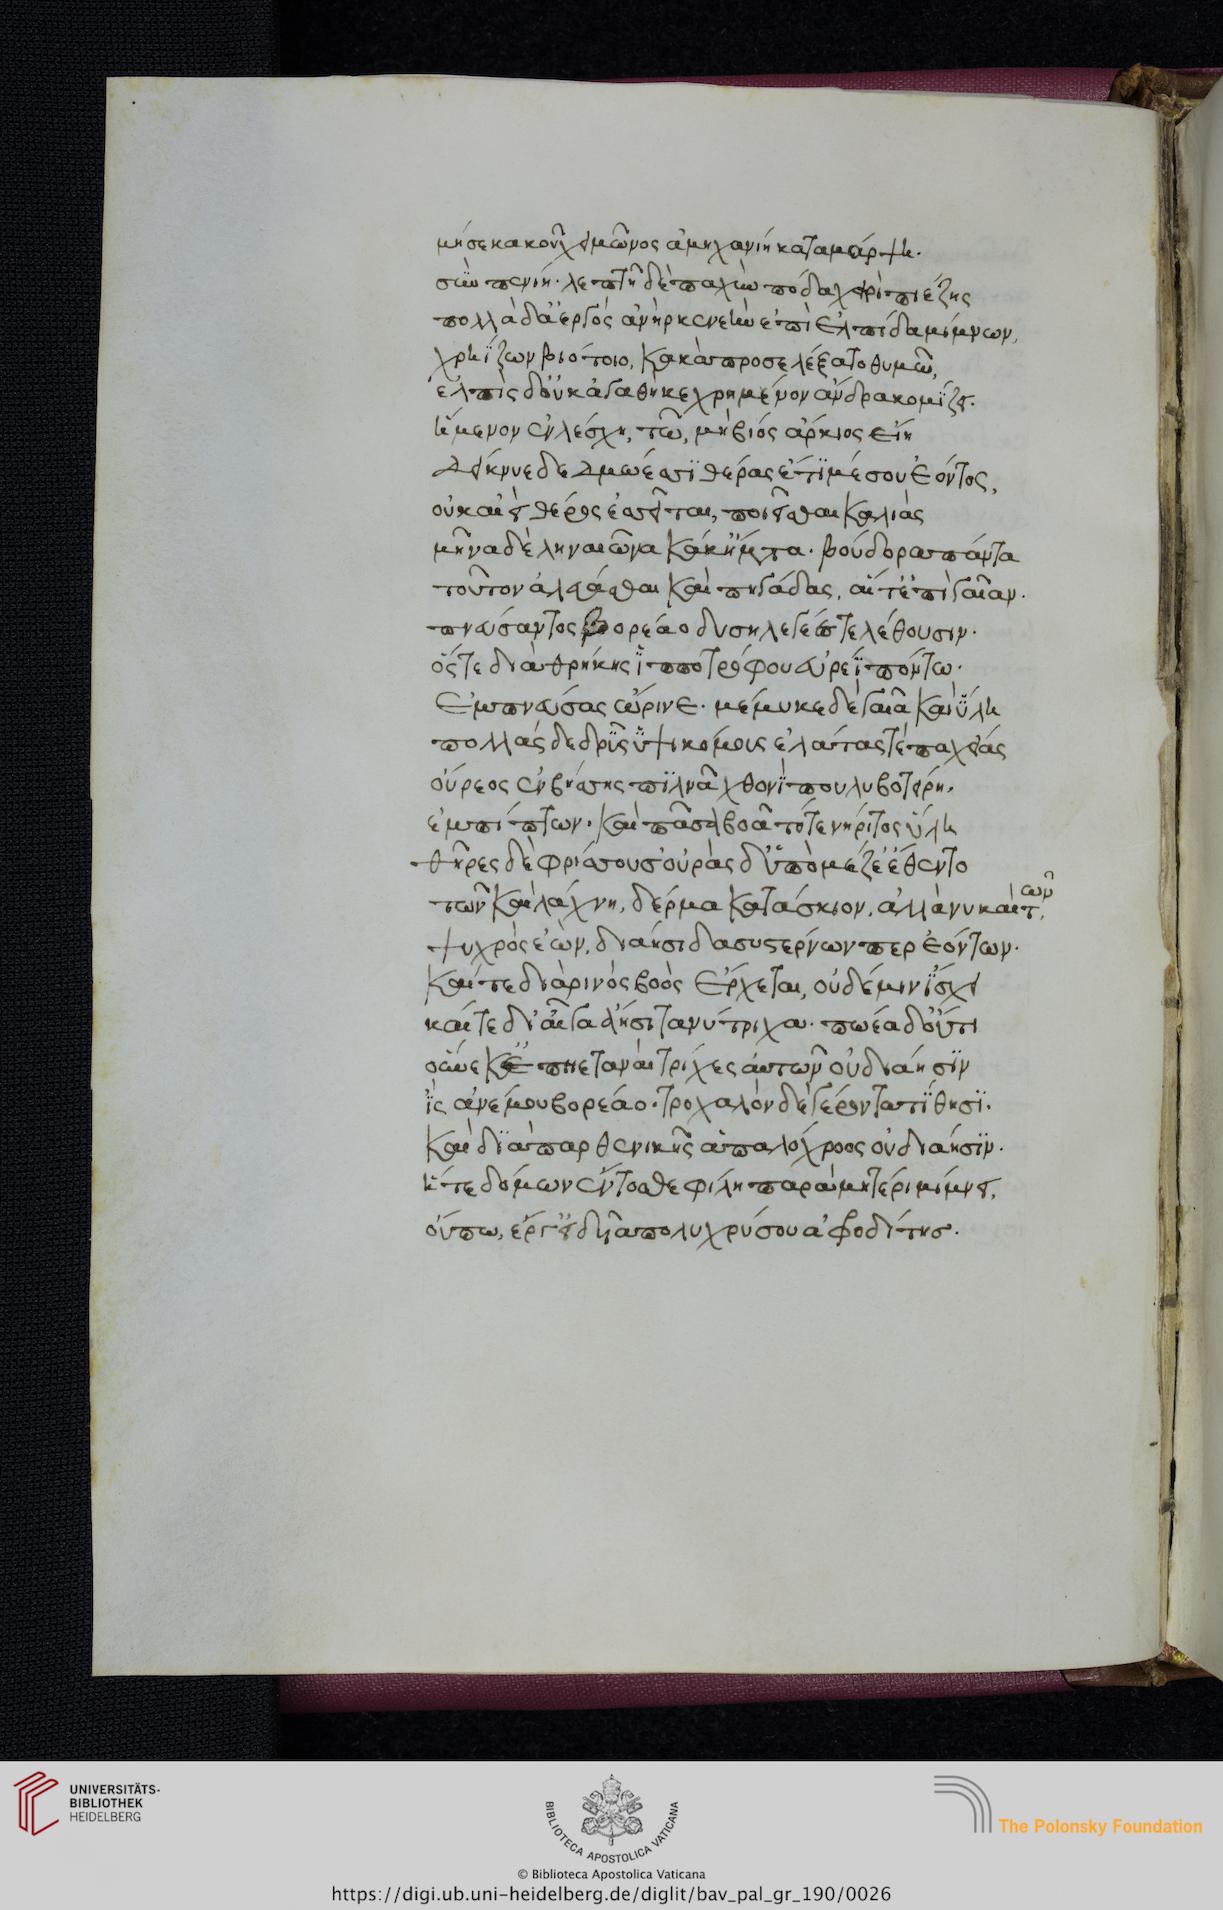 μήσε κακοῦ χειμῶνος ἀμηχανίη καταμάρψη.
σὺν πενίη. λεπτῆ δὲ παχὺν πόδα χειρὶ πιέζης
πολλὰ δ' ἀεργὸς ἀνὴρ κενεὴν ἐπὶ ἐλπίδα μίμνων,
χρηΐζων βιότοιο, κακὰ προσελέξατο θυμῶ,
ἐλπὶς δ' οὐκ ἀγαθὴ κεχρημένον ἄνδρα κομίζει.
ἥμενον ἐν λέσχη, τῶ, μὴ βίος ἄρκιος εἴη
Δείκνυε δὲ δμωέσσι θέρος ἔτι μέσου ἐόντος,
οὐκ αἰεὶ θέρος ἐσσεῖται, ποιεῖσθαι καλιὰς
μῆνα δὲ ληναιῶνα κάκ' ἤματα. βούδορα πάντα
τοῦτον ἀλεάσθαι καὶ πηγάδας, αἵτ' ἐπὶ γαῖαν.
πνεύσαντος βορέαο δυσηλεγέες τελέθουσιν.
ὅς τε διὰ θρήκης ἱπποτρόφου εὐρέϊ πόντω.
Ἐμπνεύσας ὤρινε. μέμυκε δὲ γαῖα καὶ ὕλη
πολλὰς δὲ δρῦς ὑψικόμοις ἐλάτας τὲ παχείας
οὔρεος ἐν βήσσης πιλνᾶ χθονὶ πουλυβοτείρη.
ἐμπίπτων. καὶ πᾶσα βοᾶ τότε νήριτος ὕλη
θῆρες δὲ φρίσσουσ' οὐρὰς δ' ὑπὸ μέζε' ἔθεντο
τῶν καὶ λάχνη, δέρμα κατάσκιον. ἀλλά νυ καὶ τῶν,
ψυχρὸς ἐὼν, διάησι δασυστέρνων περ ἐόντων.
Καί τε διὰ ρινὸς βοὸς ἔρχεται, οὐδέ μιν ἴσχει
καί τε δι' αἶγα ἄησι τανύτριχα. πώεα δ' οὔτι
οὕνεκ' ἐπηεταναὶ τρίχες αὐτῶν οὐ διάησιν
ἲς ἀνέμου βορέαο. τροχαλὸν δὲ γέροντα τίθησι.
Καὶ διὰ παρθενικῆς ἁπαλόχροος οὐ διάησιν.
ἥτε δόμων ἔντοσθε φίλη παρὰ μητέρι μίμνει,
οὔπω, ἔργ' εἰδυῖα πολυχρύσου ἀφροδίτης.
UNIVERSITÄTS-
BIBLIOTHEK
HEIDELBERG
BIBLIOTECA APOSTOLICA VATICANA
© Biblioteca Apostolica Vaticana
https://digi.ub.uni-heidelberg.de/diglit/bav_pal_gr_190/0026
The Polonsky Foundation